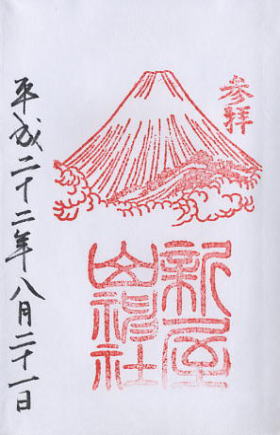 参拝
新屋
山神社
平成二十二年八月二十一日